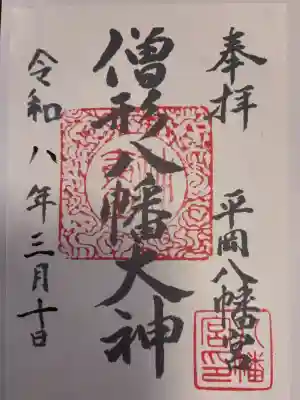 奉拝
平岡八幡宮
僧形八幡大神
令和八年三月十日